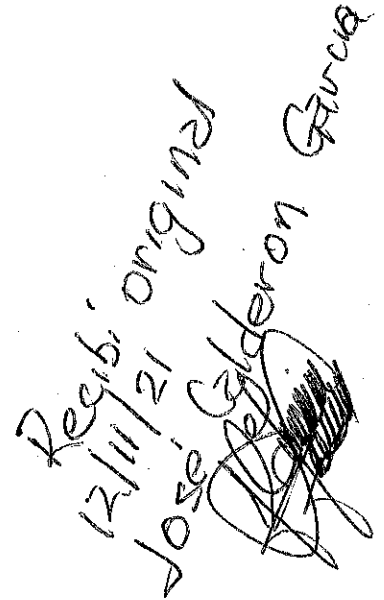 Recibí original
12/11/21
José Calderon Garcia